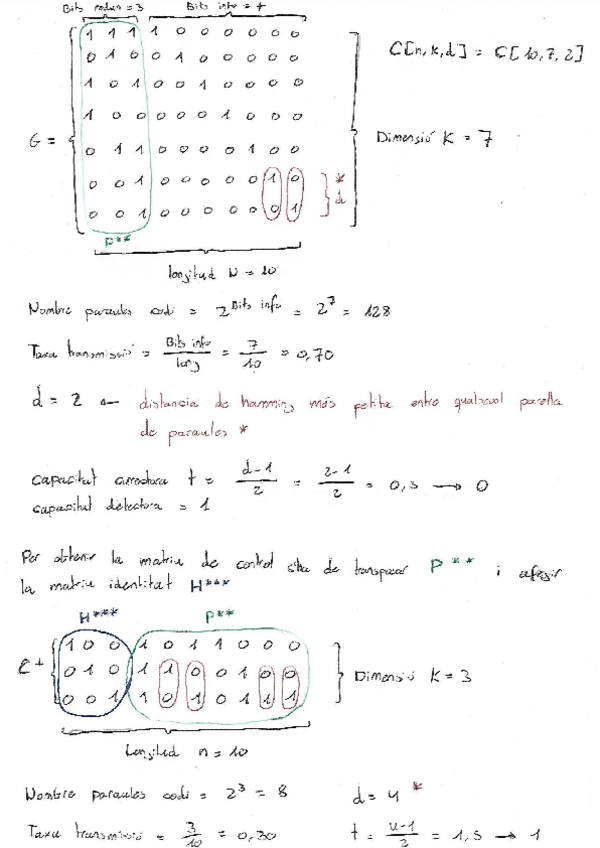 Bits redun = 3 Bits info = 7
1 1 1 1 0 0 0 0 0 0
0 1 0 0 1 0 0 0 0 0
1 0 1 0 0 1 0 0 0 0
1 0 0 0 0 0 1 0 0 0
0 1 1 0 0 0 0 1 0 0
0 0 1 0 0 0 0 0 1 0
0 0 1 0 0 0 0 0 0 1
G =
C[n,k,d] = C[10,7,2]
Dimensió K = 7
* d
P**
longitud N = 10
Nombre paraules codi = 2^Bits info = 2^7 = 128
Taxa transmissió = Bits info / long = 7/10 = 0,70
d = 2 ← distancia de hamming més petita entre qualsevol parella
de paraules *
capacitat correctora t = d-1/2 = 2-1/2 = 0,5 → 0
capacitat detectora = 1
Per obtenir la matriu de control s'ha de transposar P** i afegir
la matriu identitat H***
H*** P**
1 0 0 1 0 1 1 0 0 0
C⊥ 0 1 0 1 1 0 0 1 0 0 Dimensió K = 3
0 0 1 1 0 1 0 1 1 1
Longitud n = 10
Nombre paraules codi = 2^3 = 8 d = 4 *
Taxa transmissió = 3/10 = 0,30 t = 4-1/2 = 1,5 → 1